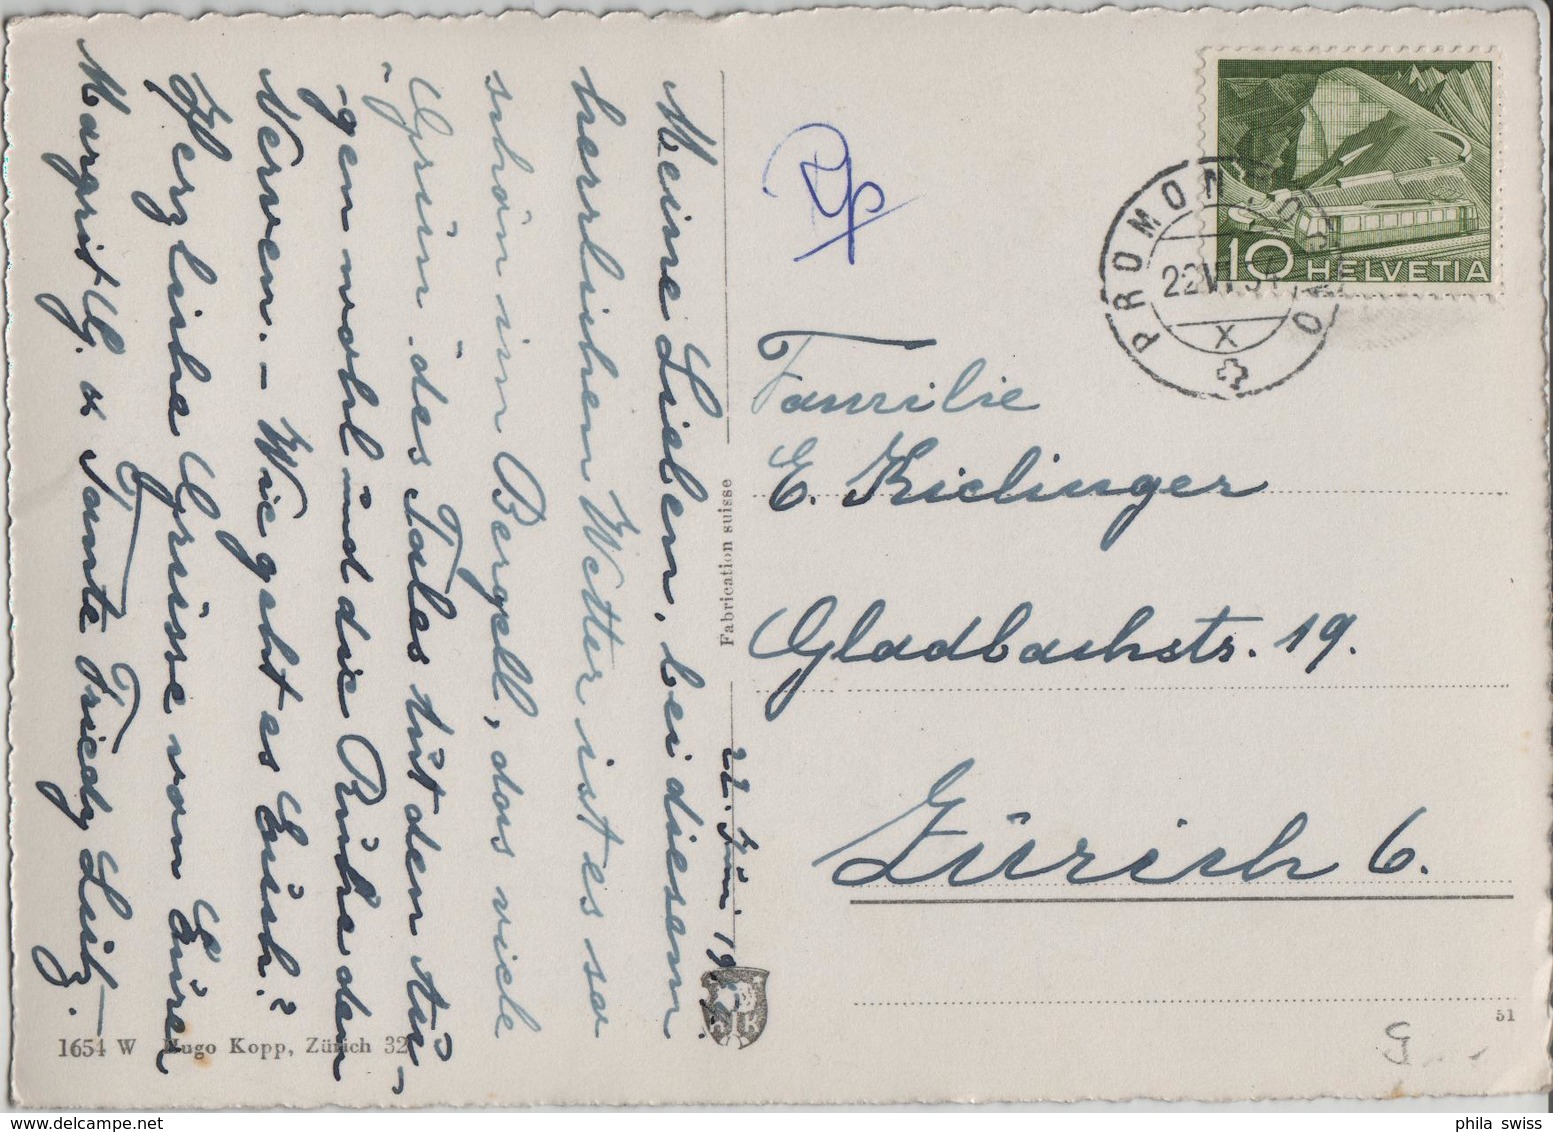 22. Juni 19
Meine Lieben, bei diesem
herrlichen Wetter ist es so
schön im Bergell, das viele
Grün des Tales tut den Au-
-gen wohl und die Ruhe den
Nerven. – Wie geht es Euch?
Herzliche Grüsse von Eurer
Margrit G. & Tante Friedy Lutz.
1654 W Hugo Kopp, Zürich 32
Fabrication suisse
PROMONTOGNO
22.VI.51
X
10 HELVETIA
Familie
E. Kielinger
Gladbachstr. 19.
Zürich 6.
51
phila swiss